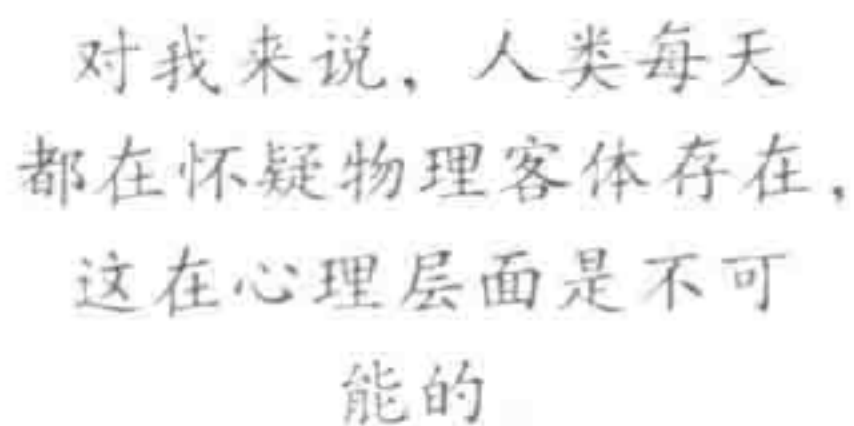 对我来说，人类每天
都在怀疑物理客体存在，
这在心理层面是不可
能的